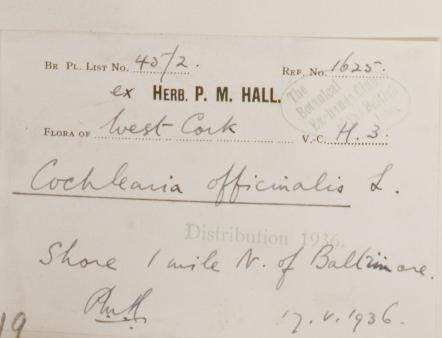 Br Pl. List No. 45/2. Ref. No. 1625.
ex Herb. P. M. HALL.
The Botanical Exchange Club British
Flora of West Cork V.-C. H. 3.
Cochlearia officinalis L.
Distribution 1936.
Shore 1 mile N. of Baltimore.
PMH
17. V. 1936.
19